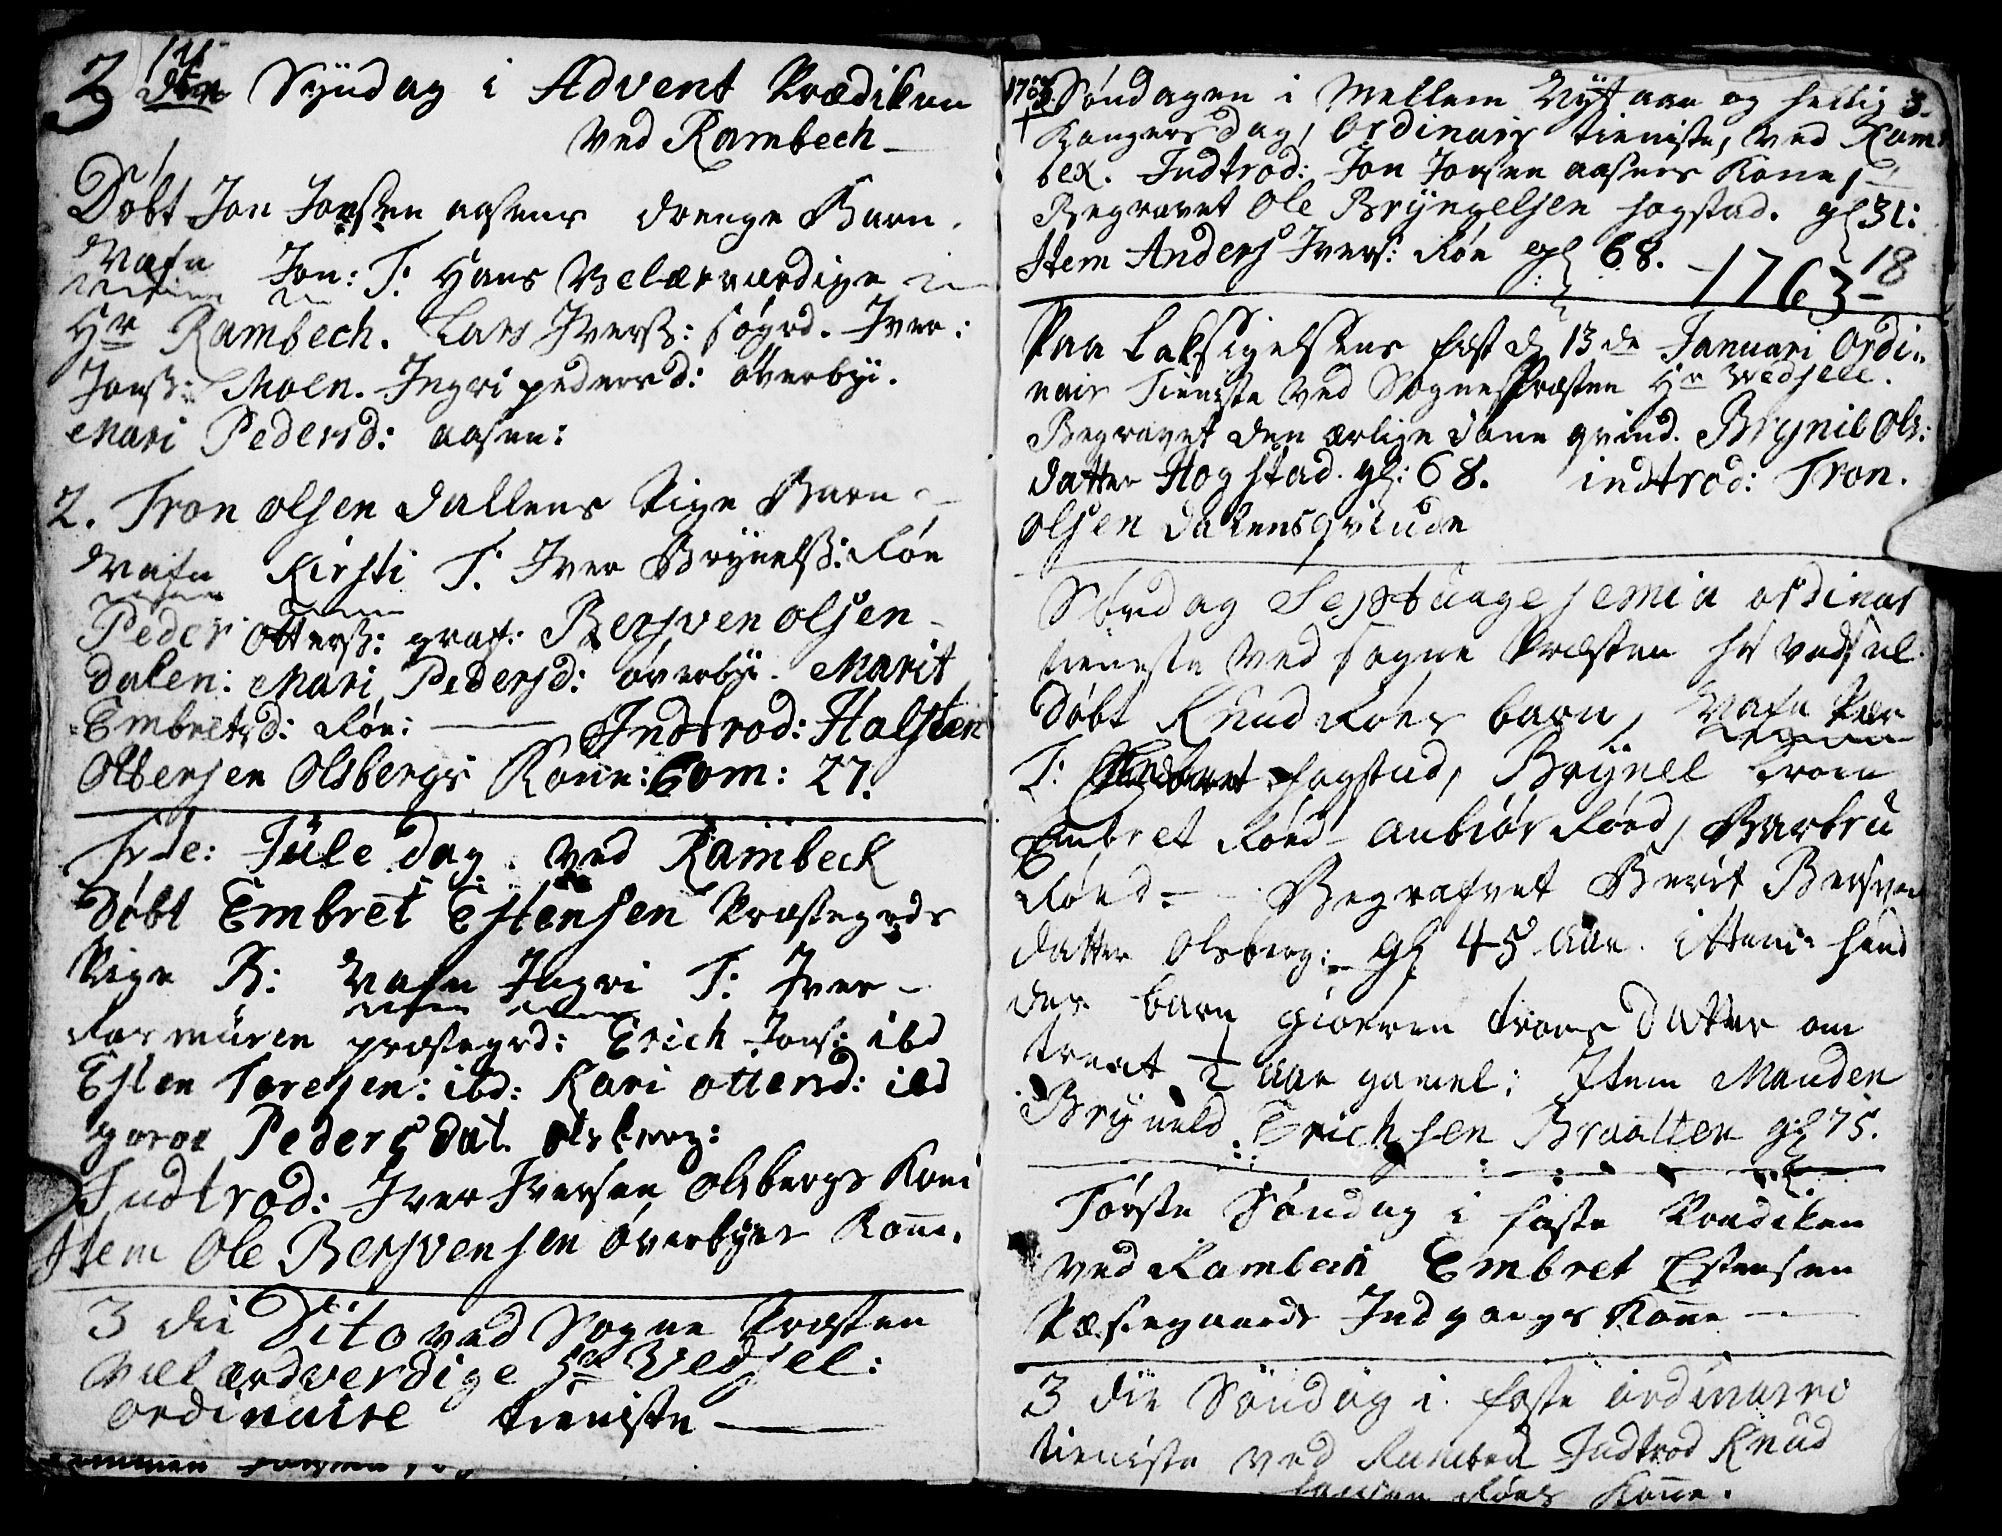 3 die Syndag i Advent Prædiken
ved Rambech
Døbt Jon Jonsen aasens drenge Barn.
Nafn Jon: T: Hans Velærværdige
Hr Rambech. Lars Iverss: søgrd. Iver:
Jonss: Moen. Ingri pedersd: øverbye.
Mari Pedersd: aasen:
2. Tron olsen dallens Pige Barn
Nafn Kirsti T: Iver Brynelss: Røe
Peder Otterss: graf: Bersven olsen
dalen: Mari Pedersd: øverby. Marit
Embretsd: Røe: Indtrod: Halsten
Olbersen Olsbergs Kone: Com: 27.
Iste: Jule dag. ved Rambeck
døbt Embret Estensen Præstegrds
Pige B: Nafn Ingri T: Iver
præstegrd: Erich Jons: ibd
Esten Toresen: ibd: Kari ottersd: ibd
goroe Pedersdat. olsberg:
Indtrod: Iver Iversen Olsbergs Kone
Item Ole Bersvensen øverbyes Kone.
3 die Dito ved Sogne Præsten
Velærdverdige Hr Wedsel:
ordinaire tieniste
1763 Søndagen i Mellem Nyt aar og hellig 3.
Kongersdag, ordinair tieniste, ved Ram
bex. Indtrod: Jon Jonsen aasens Kone,
Begravet Ole Bryngelsen hogstad. gl 31:
Item Anders Ivers: Røe gl 68. 18
1763
Paa Laksigelsens fest d 13de Januari Ordi
nair Tieniste ved Sognes Præsten Hr Wedsell.
Begravet den ærlige dane qvind. Brynil Ols:
datter Hogstad. gl: 68. indtrod: Tron.
Olsen Dalens qvinde
Søndag Septuagesemia ordinar
tieneste ved sogne Præsten hr vedsel
Døbt Knud Røes barn, Nafn Peder
T: hogstad, Brynel
Embret Røed anbiør Røed, Barbru
Røed Begrafvet Berit Bersven
datter Olsberg: gl 45 aar. Item hen
des barn giøeren trons datter om
trent 1/2 aar gamel: Item Manden
Bryneld Erichsen Braatten gl 75.
Første Søndag i faste Prædiken
ved Rambech Embret Estensen
Præstegaards Indgangs Kone
3 die Søndag i faste ordinarie
tieniste ved Rambech Indtrod Knud
Røes Kone.